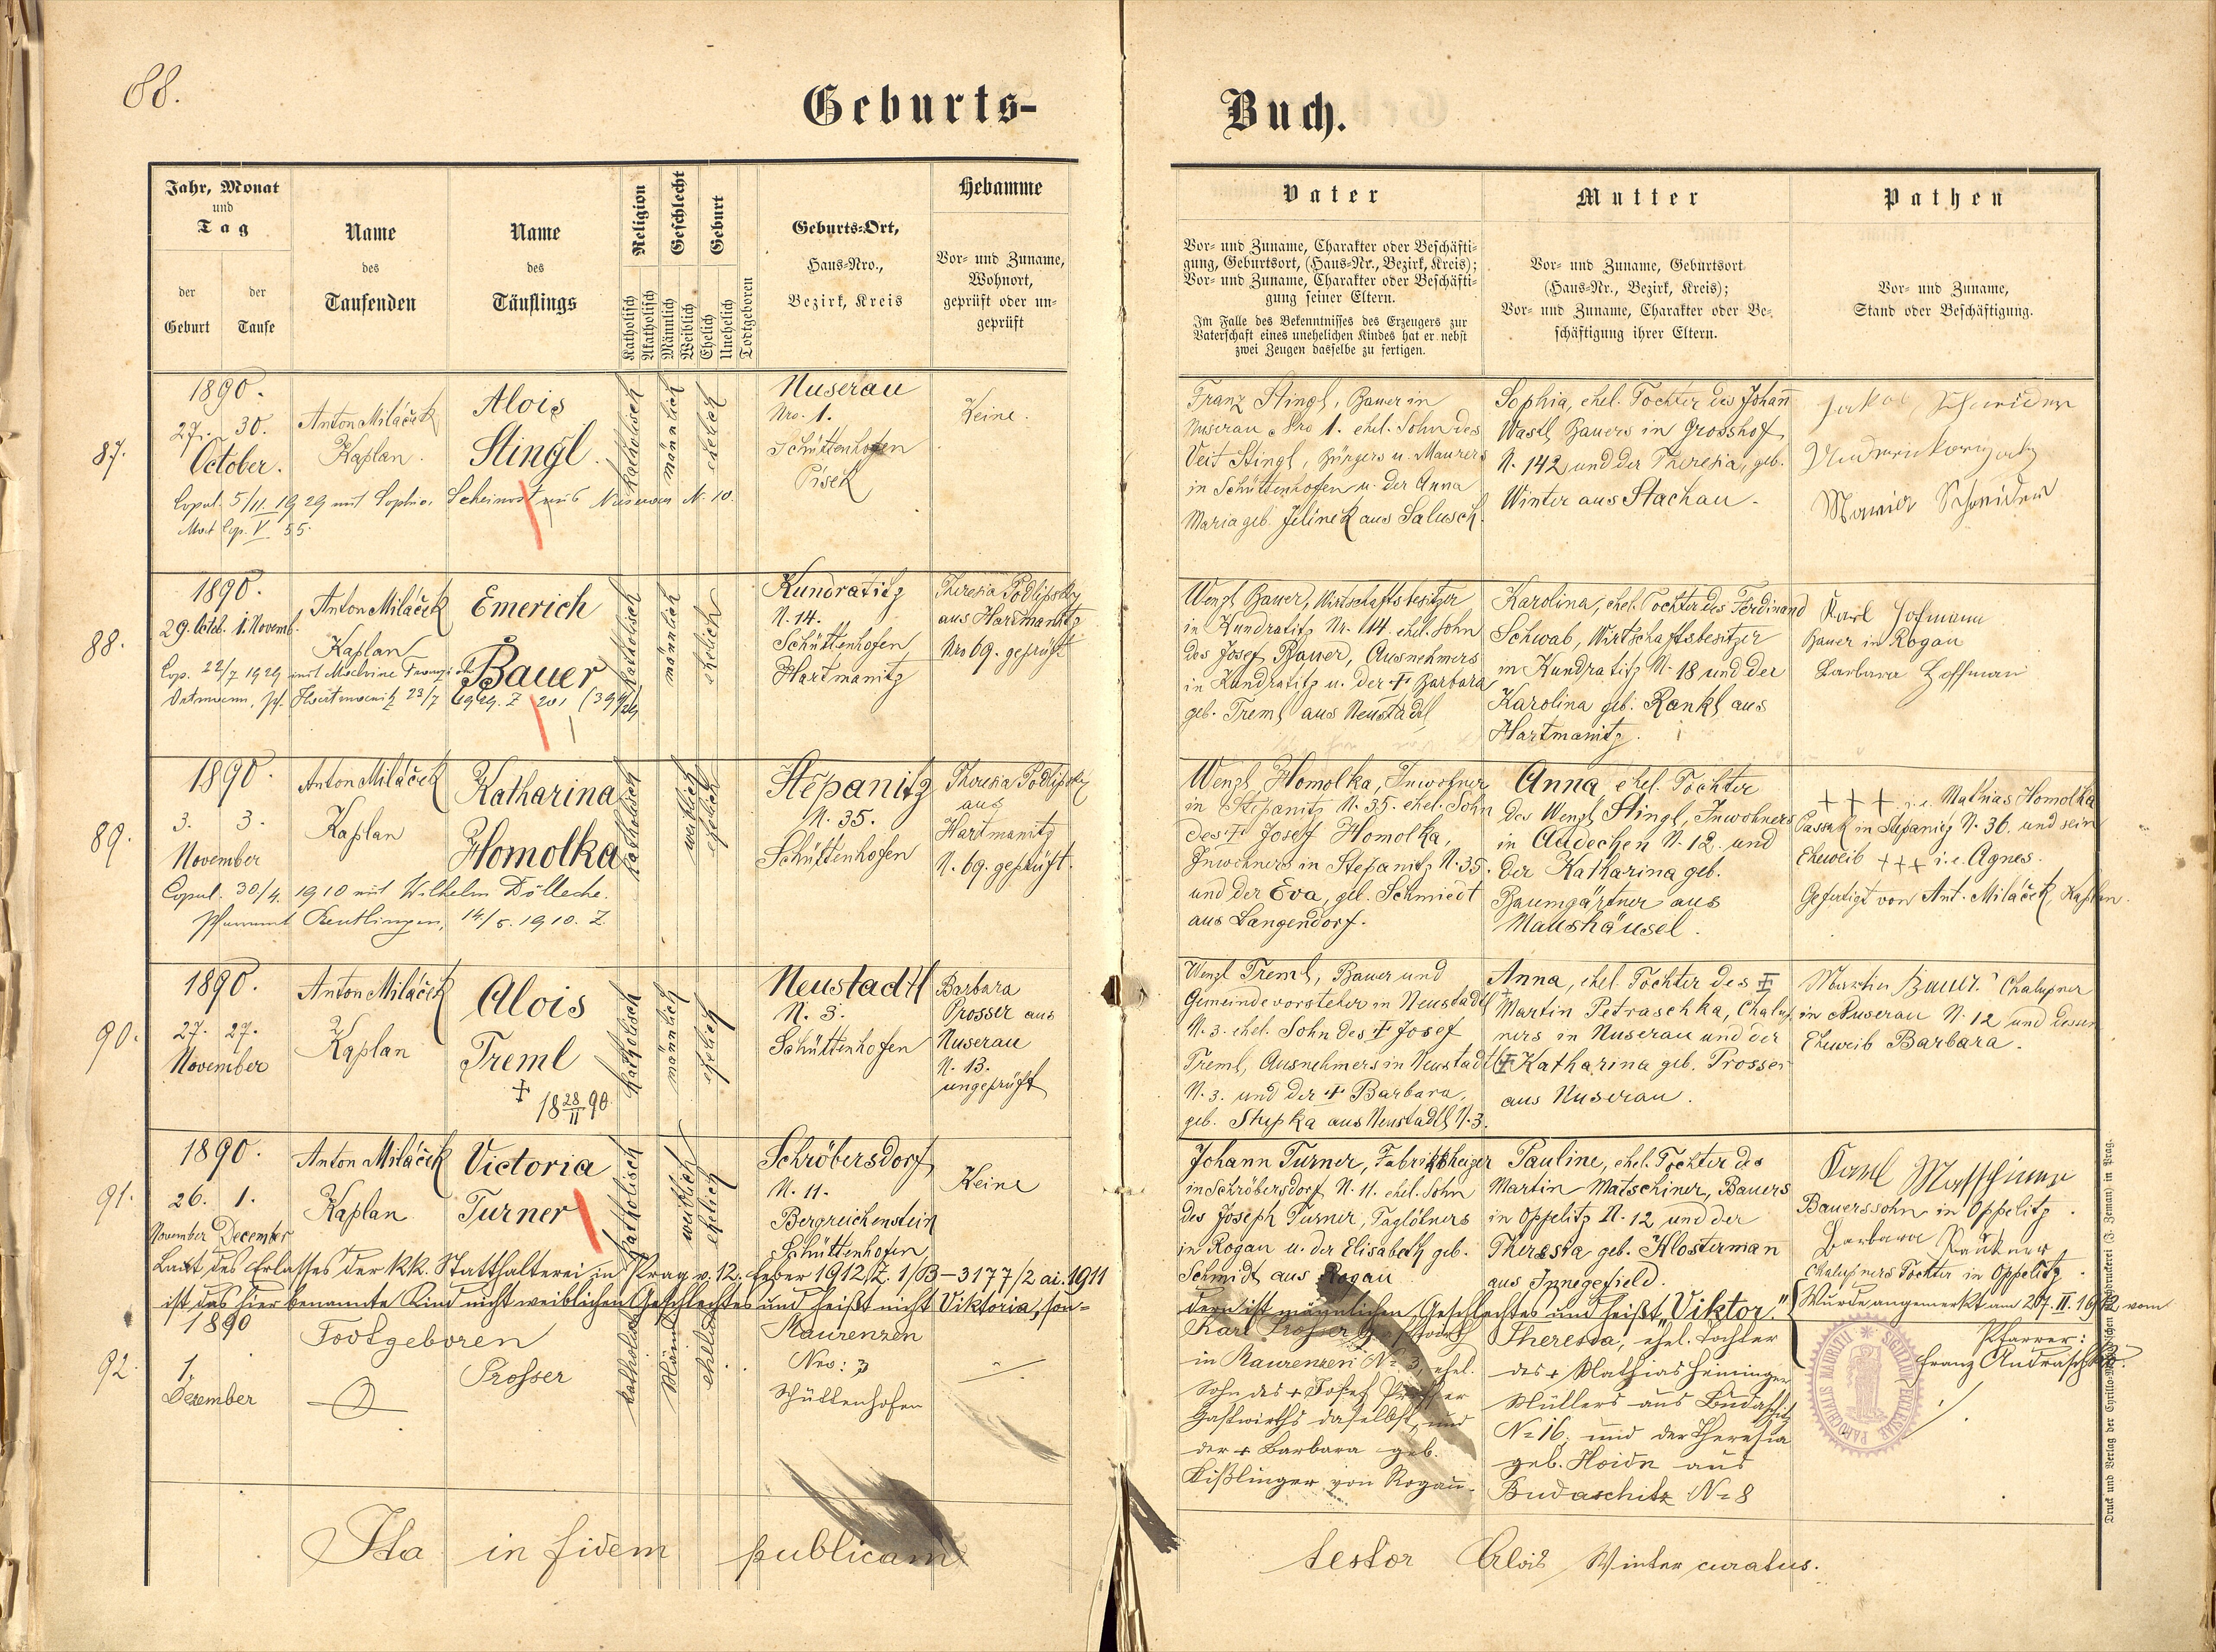 88.
Geburts-
Buch.
Jahr, Monat
und
Tag
der
Geburt
der
Taufe
Name
des
Taufenden
Name
des
Täuflings
Religion
Katholisch
Akatholisch
Geschlecht
Männlich
Weiblich
Geburt
Ehelich
Unehelich
Todtgeboren
Geburts-Ort,
Haus-Nro.,
Bezirk, Kreis
Hebamme
Vor- und Zuname,
Wohnort,
geprüft oder un-
geprüft
Vater
Vor- und Zuname, Charakter oder Beschäfti-
gung, Geburtsort, (Haus-Nr., Bezirk, Kreis);
Vor- und Zuname, Charakter oder Beschäfti-
gung seiner Eltern.
Im Falle des Bekenntnisses des Erzeugers zur
Vaterschaft eines unehelichen Kindes hat er nebst
zwei Zeugen dasselbe zu fertigen.
Mutter
Vor- und Zuname, Geburtsort
(Haus-Nr., Bezirk, Kreis);
Vor- und Zuname, Charakter oder Be-
schäftigung ihrer Eltern.
Pathen
Vor- und Zuname,
Stand oder Beschäftigung.
87.
1890.
27. 30.
October.
Anton Miláček
Kaplan.
Alois
Stingl.
katholisch
männlich
ehelich
Nuserau
Nro. 1.
Schüttenhofen
Pisek
Keine.
Copul. 5/11. 1929 mit Sophie. Scheinost aus Nuserau N. 10.
Franz Stingl, Bauer in
Nuserau Nro 1. ehel. Sohn des
Veit Stingl, Bürgers u. Maurers
in Schüttenhofen u. der Anna
Maria geb. Jelinek aus Salusch.
Sophia, ehel. Tochter des Johann
Wastl Bauers in Grosshof
N. 142 und der Theresia, geb.
Winter aus Stachau.
Jakob Schneider
Maria Schneider
88.
1890.
29. Octob. 1. Novemb.
Anton Miláček
Kaplan
Emerich
Bauer
katholisch
männlich
ehelich
Kundratitz
N. 14.
Schüttenhofen
Hartmanitz
Theresia Podlipsky
aus Hartmanitz
Nro 69. geprüft
Cop. 22/7 1929 mit
Wenzl Bauer, Wirtschaftsbesitzer
in Kundratitz Nr. 14. ehel. Sohn
des Josef Bauer, Ausnehmers
in Kundratitz u. der + Barbara
geb. Treml aus Neustadl
Karolina, ehel. Tochter des Ferdinand
Schwab, Wirtschaftsbesitzer
in Kundratitz N. 18 und der
Karolina geb. Rankl aus
Hartmanitz.
Karl Hofmann
Bauer in Rogau
Barbara Hoffman
89.
1890.
3. 3.
November
Anton Miláček
Kaplan
Katharina
Homolka
katholisch
weiblich
ehelich
Stepanitz
N. 35.
Schüttenhofen
Theresia Podlipsky
aus
Hartmanitz
N. 69. geprüft.
Copul. 30/4. 1910 mit Wilhelm Döllecke.
Pfarramt Reutlingen, 14/5. 1910. Z
Wenzl Homolka, Inwohner
in Stepanitz N. 35. ehel. Sohn
des + Josef Homolka,
Inwohners in Stepanitz N. 35.
und der Eva, geb. Schmiedt
aus Langendorf.
Anna, ehel. Tochter
des Wenzl Stingl, Inwohners
in Audechen N. 12. und
der Katharina geb.
Baumgärtner aus
Maushäusel.
+++ i.e. Mathias Homolka
in Stepanitz N. 36. und sein
Eheweib +++ i.e. Agnes.
Gefertigt von Ant. Miláček, Kaplan.
90.
1890.
27. 27.
November
Anton Miláček
Kaplan
Alois
Treml
+ 18 28/11 90.
katholisch
männlich
ehelich
Neustadtl
N. 3.
Schüttenhofen
Barbara
Prosser aus
Nuserau
N. 13.
ungeprüft
Wenzl Treml, Bauer und
Gemeindevorsteher in Neustadtl
N. 3. ehel. Sohn des + Josef
Treml, Ausnehmers in Neustadtl
N. 3. und der + Barbara,
geb. Stupka aus Neustadtl N. 3.
Anna, ehel. Tochter des +
Martin Petraschka, Chalup-
ners in Nuserau und der
+ Katharina geb. Prosser
aus Nuserau.
Martin Bauer Chalupner
in Nuserau N. 12 und dessen
Eheweib Barbara.
91.
1890.
26. 1.
November December
Anton Miláček
Kaplan
Victoria
Turner
katholisch
weiblich
ehelich
Schröbersdorf
N. 11.
Bergreichenstein
Schüttenhofen
Keine
Johann Turner, Fabriksheizer
in Schröbersdorf N. 11. ehel. Sohn
des Joseph Turner, Taglöhners
in Rogau u. der Elisabeth geb.
Schmidt aus Rogau
Pauline, ehel. Tochter des
Martin Matschiner, Bauers
in Oppelitz N. 12 und der
Theresia geb. Klosterman
aus Innegefield.
Karl Matschiner
Bauerssohn in Oppelitz.
Barbara
Chalupners Tochter in Oppelitz.
Laut des Erlasses der k.k. Statthalterei in Prag v. 12. feber 1912, Z. 1/B-3177/2 ai. 1911
ist das hier benannte Kind nicht weiblichen Geschlechtes und heißt nicht Viktoria, son-
dern ist männlichen Geschlechtes und heißt „Viktor."
Wurde angemerkt am 27. II. 1912 vom
Pfarrer:
Franz Andraschko.
92.
1890
1.
Dezember
Todtgeboren
Prosser
katholisch
Männl.
ehelich
Maurenzen
Nro: 3
Schüttenhofen
Karl Prosser
in Maurenzen No 3, ehel.
Sohn des + Josef Prosser
Gastwirths daselbst, und
der + Barbara geb.
Kißlinger von Rogau.
Theresia, ehel. Tochter
des + Mathias Heininger
Müllers aus Budaschitz
No 16. und der Theresia
geb. Hoidn aus
Budaschitz No 8
SIGILLUM ECCLESIAE PAROCHIALIS MAURITII
Ita in fidem publicam
testor Alois Winter curatus.
Druck und Verlag der Cyrillo-Method'schen Buchdruckerei (J. Zeman) in Prag.